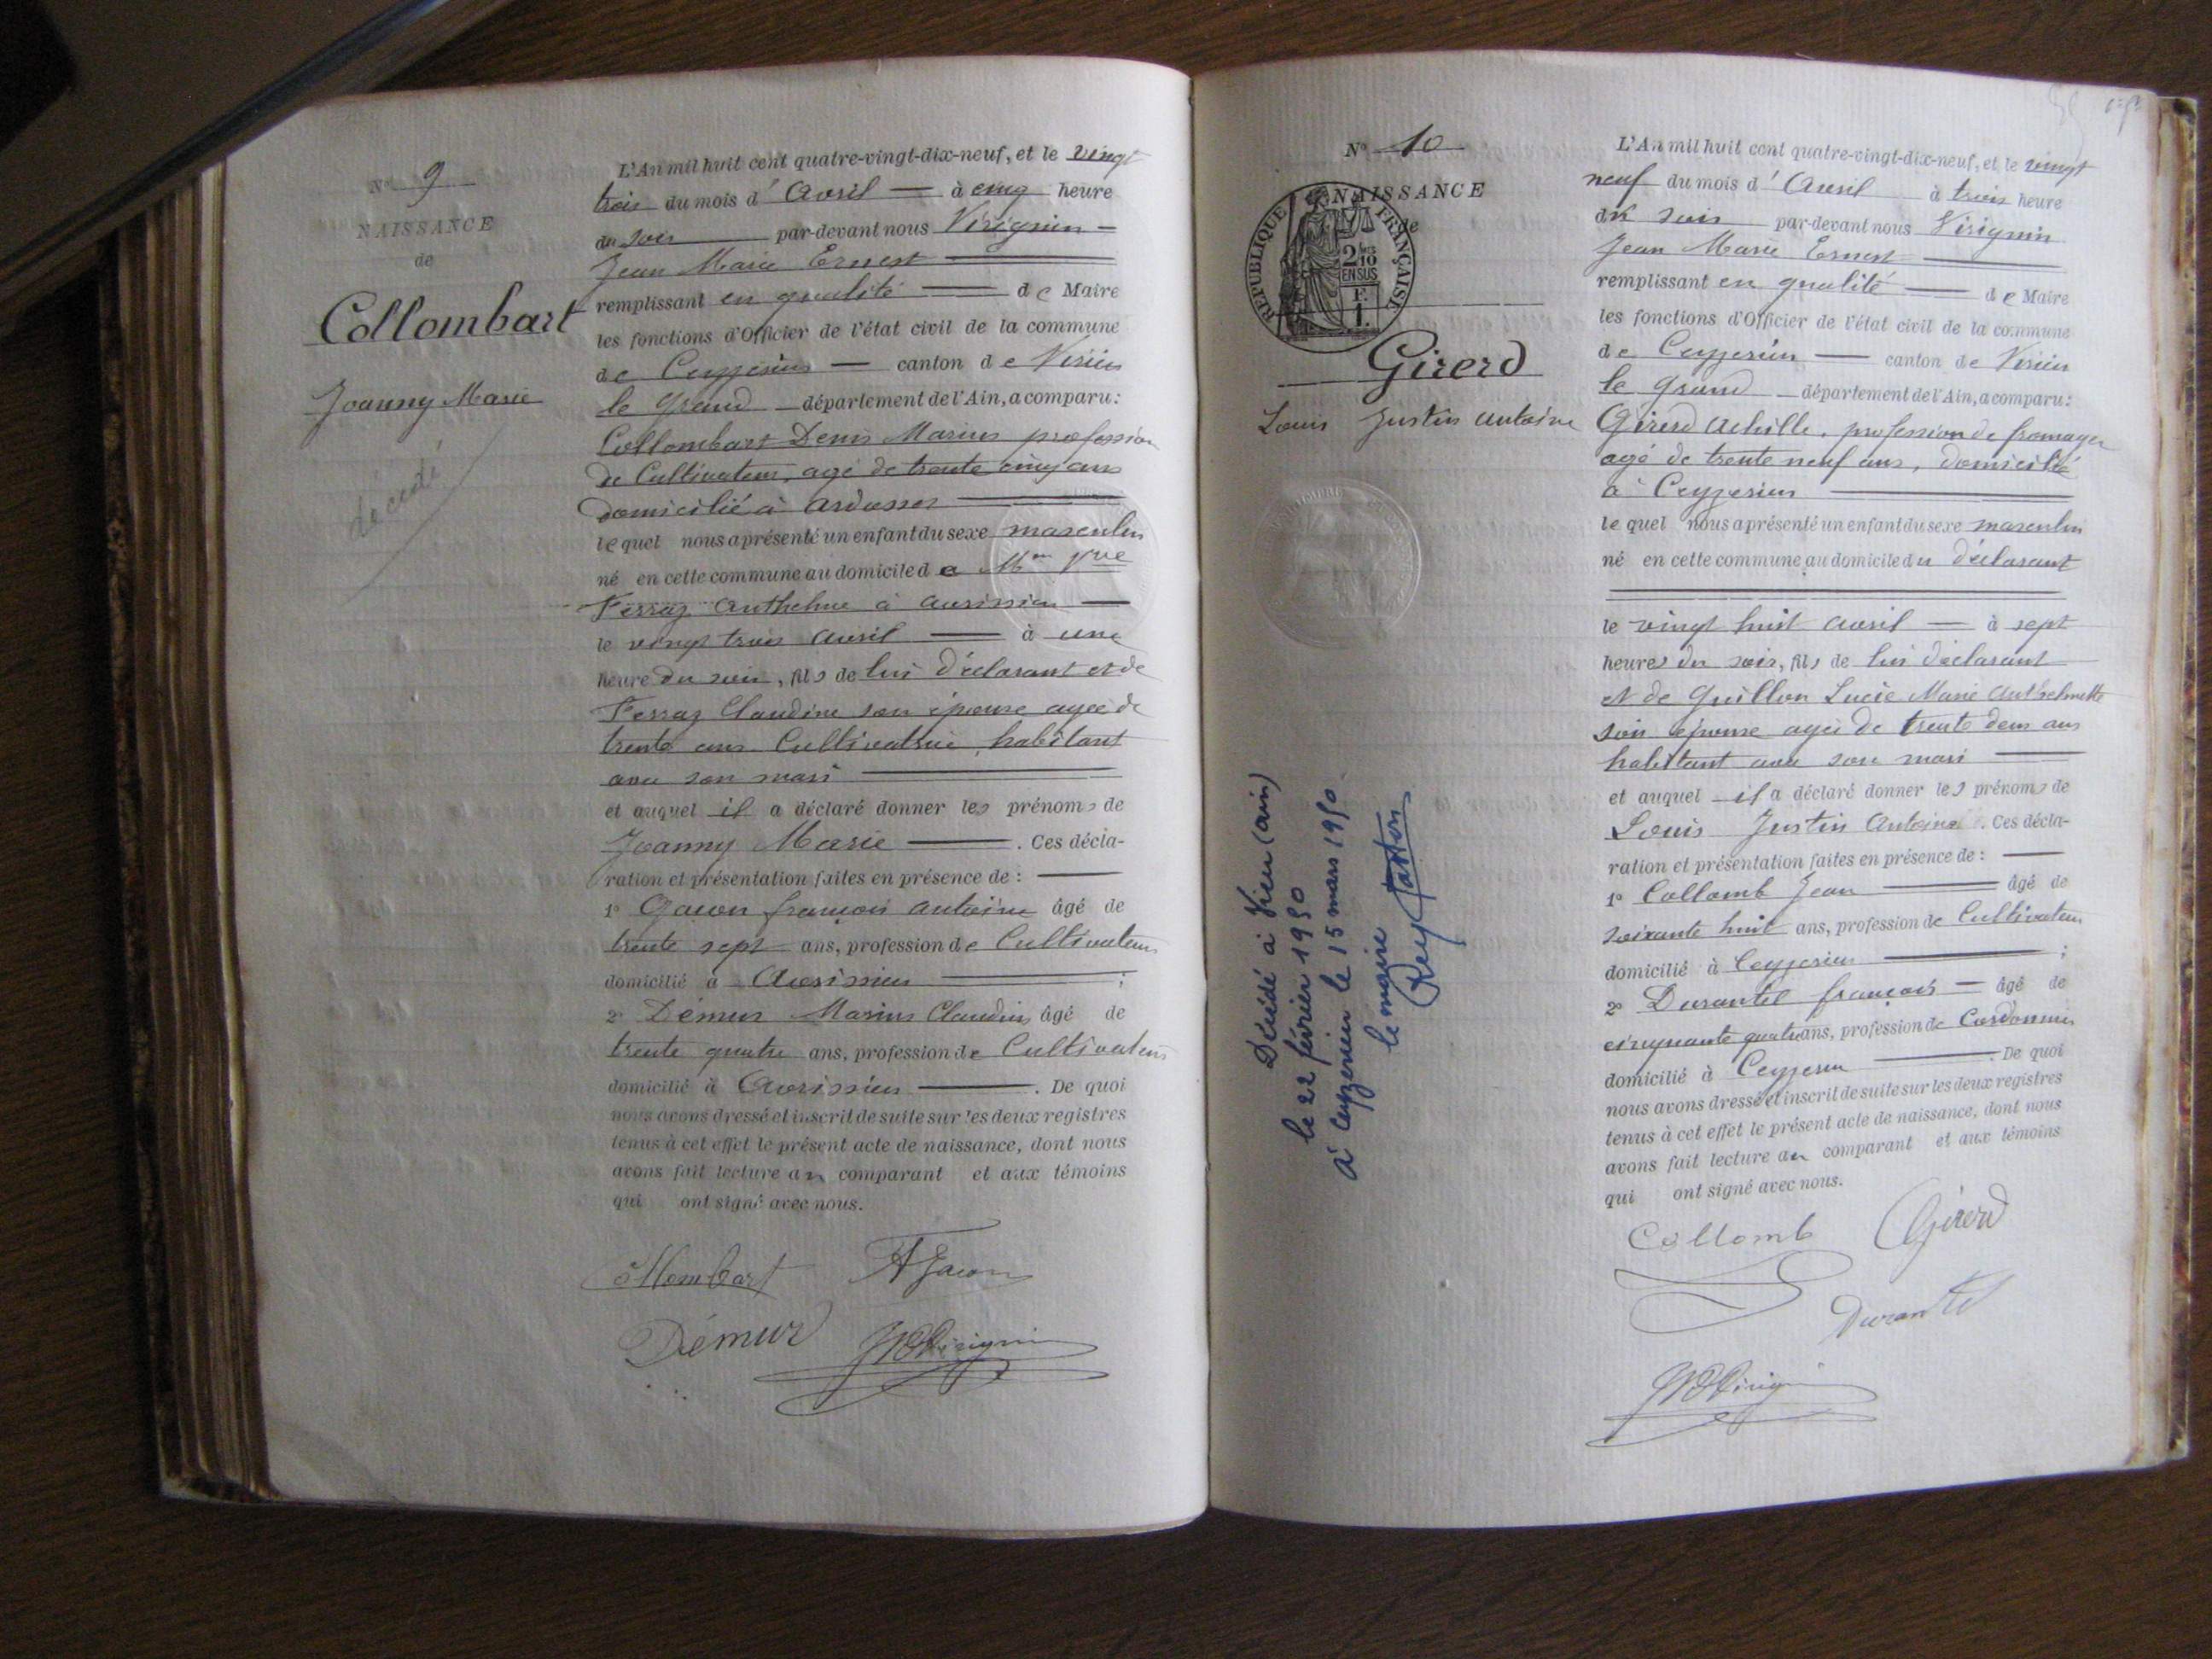 N° 9
NAISSANCE
de
Collombart
Joanny Marie
décédé
L'An mil huit cent quatre-vingt-dix-neuf, et le vingt
trois du mois d' Avril — à cinq heure
du soir par-devant nous Virignin —
Jean Marie Ernest
remplissant en qualité — de Maire
les fonctions d'Officier de l'état civil de la commune
de Ceyzerieu — canton de Virieu
le Grand département de l'Ain, a comparu :
Collombart Denis Marius profession
de Cultivateur, agé de trente cinq ans
domicilié à Ardosset
lequel nous a présenté un enfant du sexe masculin
né en cette commune au domicile de Mme Vve
Ferraz Anthelme à Avrissieu —
le vingt trois avril — à une
heure du soir, fils de lui déclarant et de
Ferraz Claudine son épouse agée de
trente ans Cultivatrice, habitant
avec son mari
et auquel il a déclaré donner les prénoms de
Joanny Marie — . Ces décla-
ration et présentation faites en présence de : —
1° Gacon françois antoine âgé de
trente sept ans, profession de Cultivateur
domicilié à Avrissieu ;
2° Démur Marius Claudius âgé de
trente quatre ans, profession de Cultivateur
domicilié à Avrissieu — . De quoi
nous avons dressé et inscrit de suite sur les deux registres
tenus à cet effet le présent acte de naissance, dont nous
avons fait lecture au comparant et aux témoins
qui ont signé avec nous.
Collombart A Gacon
Démur Virignin
N° 10
NAISSANCE
de
REPUBLIQUE FRANÇAISE
2/10
EN SUS
F.
1.
Girerd
Louis Justin Antoine
Décédé à Vieu (ain)
le 22 février 1950
à Ceyzerieu le 15 mars 1950
le maire
L'An mil huit cent quatre-vingt-dix-neuf, et le vingt
neuf du mois d' Avril à trois heure
du soir par-devant nous Virignin
Jean Marie Ernest
remplissant en qualité — de Maire
les fonctions d'Officier de l'état civil de la commune
de Ceyzerieu — canton de Virieu
le Grand département de l'Ain, a comparu :
Girerd Achille, profession de fromager
agé de trente neuf ans, domicilié
à Ceyzerieu
lequel nous a présenté un enfant du sexe masculin
né en cette commune au domicile du déclarant
le vingt huit avril — à sept
heures du soir, fils de lui déclarant
et de Guillon Lucie Marie Anthelmette
son épouse agée de trente deux ans
habitant avec son mari
et auquel il a déclaré donner les prénoms de
Louis Justin Antoine . Ces décla-
ration et présentation faites en présence de : —
1° Collomb Jean — âgé de
soixante huit ans, profession de Cultivateur
domicilié à Ceyzerieu ;
2° Durantel françois — âgé de
cinquante quatre ans, profession de Cordonnier
domicilié à Ceyzerieu . De quoi
nous avons dressé et inscrit de suite sur les deux registres
tenus à cet effet le présent acte de naissance, dont nous
avons fait lecture au comparant et aux témoins
qui ont signé avec nous.
Collomb Girerd
Durantel